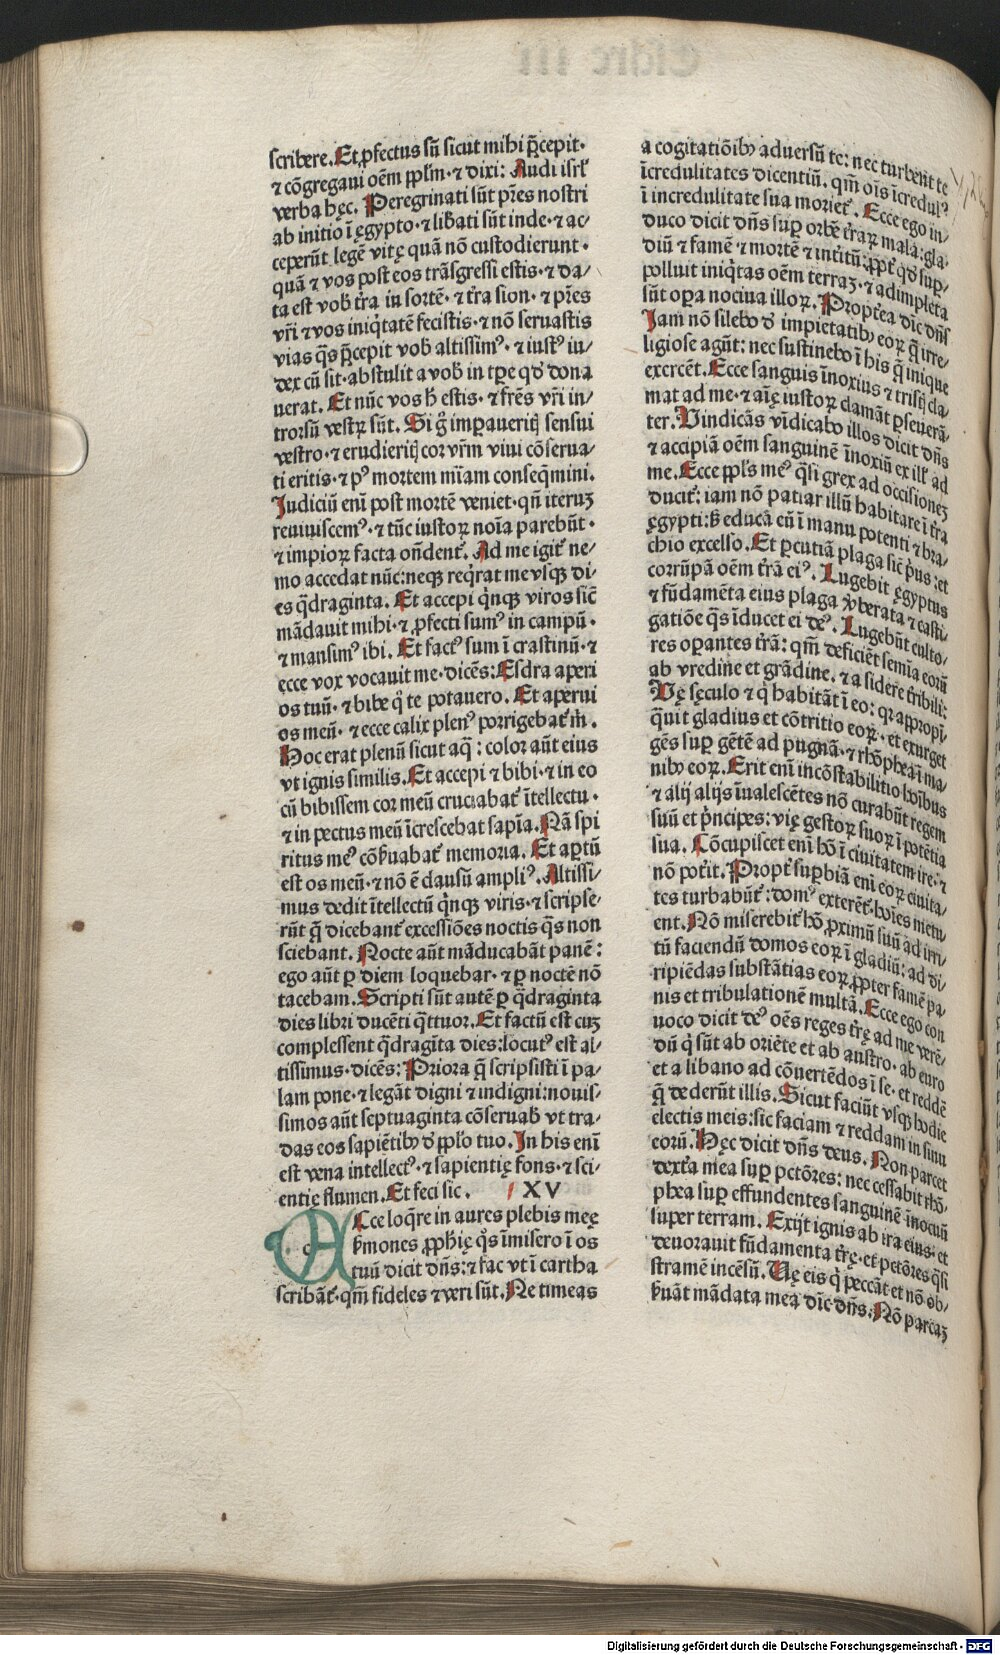 scribere. Et ꝓfectus sū sicut mihi p̄cepit·
⁊ cōgregaui oēm pp̄lm·⁊ dixi: Audi isrl̓
verba hęc. Peregrinati sūt pr̄es nostri
ab initio ī ęgypto·⁊ lib̄ati sūt inde·⁊ ac-
ceperūt legē vitę quā nō custodierunt·
quā ⁊ vos post eos trāsgressi estis·⁊ da/
ta est vob̄ tr̄a in sortē·⁊ tr̄a sion·⁊ pr̄es
vr̄i ⁊ vos iniq̇tatē fecistis·⁊ nō seruastis
vias q̄s p̄cepit vob̄ altissimꝰ·⁊ iustꝰ iu/
dex cū sit·abstulit a vob̄ in tꝑe qd̓ dona
uerat. Et nūc vos h̄ estis·⁊ fr̄es vr̄i in/
trorsū vestꝝ sūt. Si g̊ imꝑaueritꝭ sensui
vestro·⁊ erudieritꝭ cor vr̄m viui cōserua/
ti eritis·⁊ pꝰ mortem mīam conseq̄mini.
Judiciū enī post mortē veniet·qn̄ iteruꝫ
reuiuiscemꝰ·⁊ tūc iustoꝝ noīa parebūt·
⁊ impioꝝ facta on̄dent᷑. Ad me igit᷑ ne/
mo accedat nūc:neqꝫ req̇rat me vsqꝫ di-
es q̄draginta. Et accepi q̇nqꝫ viros sic̄
mādauit mihi·⁊ ꝓfecti sumꝰ in campū·
⁊ mansimꝰ ibi. Et factꝰ sum ī crastinū·⁊
ecce vox vocauit me·dicēs: Esdra aperi
os tuū·⁊ bibe q̊ te potauero. Et aperui
os meū·⁊ ecce calix plenꝰ porrigebat᷑ m̄.
Hoc erat plenū sicut aq̄: color aūt eius
vt ignis similis. Et accepi ⁊ bibi·⁊ in eo
cū bibissem cor meū cruciabat᷑ ītellectu·
⁊ in pectus meū īcrescebat sapīa. Nā spi
ritus meꝰ cōẜuabat᷑ memoria. Et aꝑtū
est os meū·⁊ nō ē clausū ampliꝰ. Altissi-
mus dedit ītellectū q̇nqꝫ viris·⁊ scripse-
rūt q̄ dicebant᷑ excessiōes noctis q̄s non
sciebant. Nocte aūt māducabāt panē:
ego aūt ꝑ diem loquebar·⁊ ꝑ noctē nō
tacebam. Scripti sūt autē ꝑ q̄draginta
dies libri ducēti q̄ttuor. Et factū est cuꝫ
complessent q̄dragīta dies:locutꝰ est al-
tissimus·dicēs: Priora q̄ scripsisti ī pa-
lam pone·⁊ legāt digni ⁊ indigni:nouis-
simos aūt septuaginta cōseruab̄ vt tra-
das eos sapiētibꝰ d̓ pp̄lo tuo. In his enī
est vena intellectꝰ·⁊ sapientię fons·⁊ sci-
entię flumen. Et feci sic. XV
ECce loq̄re in aures plebis meę
ẜmones ꝓph̄ię q̊s īmisero ī os
tuū dicit dn̄s:⁊ fac vt ī cartha
scribāt᷑·qm̄ fideles ⁊ veri sūt. Ne timeas
a cogitatiōibꝰ aduersū te: nec turbent te
īcredulitates dicentiū. qm̄ oīs īcredulꝰ
ī incredulitate sua moriet᷑. Ecce ego in-
duco dicit dn̄s suꝑ orbē tr̄aꝝ mala: gla-
diū ⁊ famē ⁊ mortē ⁊ intr̄itū: ꝓpt᷑ qd̓ suꝑ-
polluit iniq̇tas oēm terraꝫ·⁊ adimpleta
sūt oꝑa nociua illoꝝ. Propt̓ea dic̄ dn̄s
Jam nō silebo d̓ impietatibꝰ eoꝝ q̄ irre-
ligiose agūt: nec sustinebo ī his q̄ inique
exercēt. Ecce sanguis īnoxius ⁊ tristꝭ cla-
mat ad me·⁊ aīę iustoꝝ clamāt ꝑseuerā-
ter. Vindicās vīdicabo illos dicit dn̄s
⁊ accipiā oēm sanguinē īnoxiū ex ill̓ ad
me. Ecce pp̄ls meꝰ q̄si grex ad occisioneꝫ
ducit᷑: iam nō patiar illū habitare ī tr̄a
ęgypti:ẜ educā eū ī manu potenti ⁊ bra-
chio excelso. Et ꝑcutiā plaga sic̄ p̓us: et
corrūpā oēm tr̄ā eiꝰ. Lugebit ęgyptus
⁊ fūdamēta eius plaga v̓berata ⁊ casti-
gatiōe q̄s īducet ei deꝰ. Lugebūt culto-
res oꝑantes tr̄ā: qm̄ deficiēt semīa eorū
ab vredine et grādine. ⁊ a sidere tr̄ibili:
Vę sęculo ⁊ q̇ habitāt ī eo: qꝛ appropī-
q̄uit gladius et cōtritio eoꝝ·et exurget
gēs suꝑ gētē ad pugnā·⁊ rhōphea ī ma-
nibꝰ eoꝝ. Erit enī incōstabilitio hoībus
⁊ alij alijs īualescētes nō curabūt regem
suū et p̓ncipes: vię gestoꝝ suoꝝ ī potētia
sua. Cōcupiscet enī hō ī ciuitatem ire·⁊
nō pot̓it. Propt᷑ suꝑbiā enī eoꝝ ciuita-
tes turbabūt᷑: domꝰ exterēt᷑·hoīes metu-
ent. Nō miserebit᷑ hō ꝓximū suū ad irri-
tū faciendū domos eoꝝ ī gladiū: ad di-
ripiēdas substātias eoꝝ ꝓpter famē pa-
nis et tribulationē multā. Ecce ego con
uoco dicit deꝰ oēs reges tr̄ę ad me verē-
dū q̇ sūt ab oriēte et ab austro·ab euro
et a libano ad cōuertēdos ī se·et reddē
q̄ dederūt illis. Sicut faciūt vsqꝫ hodie
electis meis: sic faciam ⁊ reddam in sinu
eorū. Hęc dicit dn̄s deus. Non parcet
dext̓a mea suꝑ pctōres: nec cessabit rhō-
phea suꝑ effundentes sanguinē īnocuū
super terram. Exijt ignis ab ira eius: et
deuorauit fūdamenta tr̄ę·et pctōres q̄si
stramē incēsū. Vę eis q̇ peccāt et nō ob-
ẜuāt mādata mea dic̄ dn̄s. Nō parcaꝫ
Digitalisierung gefördert durch die Deutsche Forschungsgemeinschaft · DFG